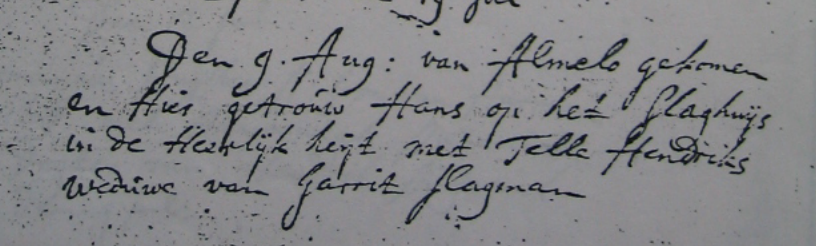 Den 9. Aug: van Almelo gekomen
en Hier getrouw Hans op het Slaghuijs
in de Heerlijkheijt met Telle Hendriks
weduwe van Garrit Slagman